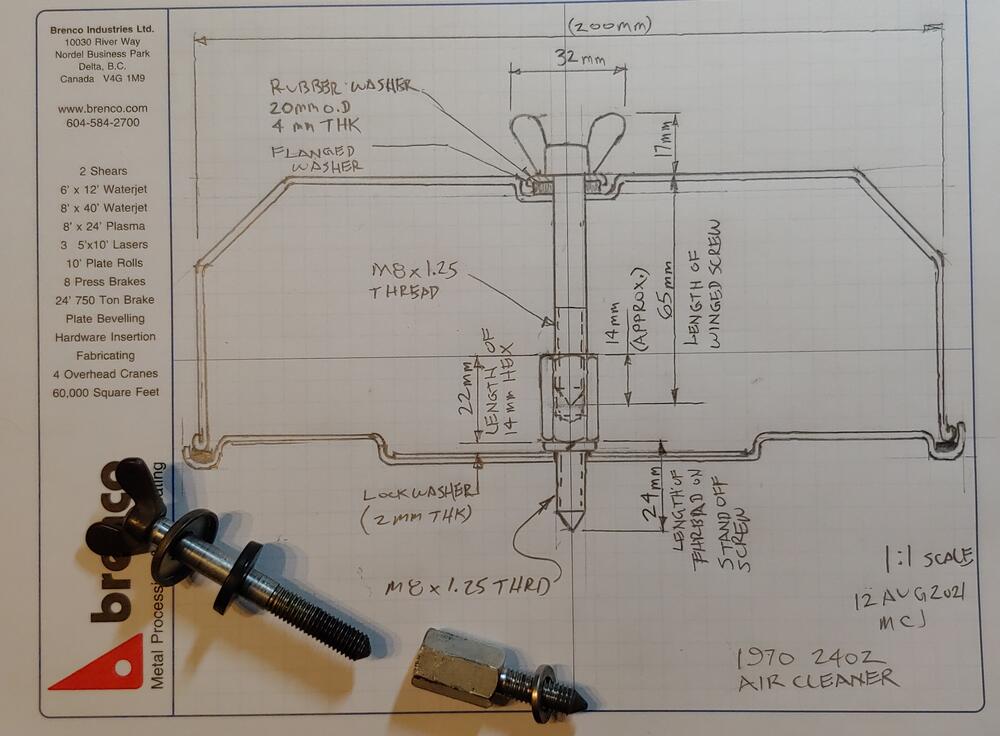 Brenco Industries Ltd.
10030 River Way
Nordel Business Park
Delta, B.C.
Canada V4G 1M9
www.brenco.com
604-584-2700
2 Shears
6' x 12' Waterjet
8' x 40' Waterjet
8' x 24' Plasma
3 5'x10' Lasers
10' Plate Rolls
8 Press Brakes
24' 750 Ton Brake
Plate Bevelling
Hardware Insertion
Fabricating
4 Overhead Cranes
60,000 Square Feet
brenco
Metal Process
(200mm)
32mm
RUBBER WASHER
20mm O.D
4 mm THK
FLANGED
WASHER
17mm
M8 x 1.25
THREAD
14mm
(APPROX.)
65mm
LENGTH OF
WINGED SCREW
22mm
LENGTH OF
14mm HEX
LOCKWASHER
(2mm THK)
24mm
LENGTH OF
ON
STAND OFF
SCREW
M8 x 1.25 THRD
1:1 SCALE
12 AUG 2021
MCJ
1970 240Z
AIR CLEANER